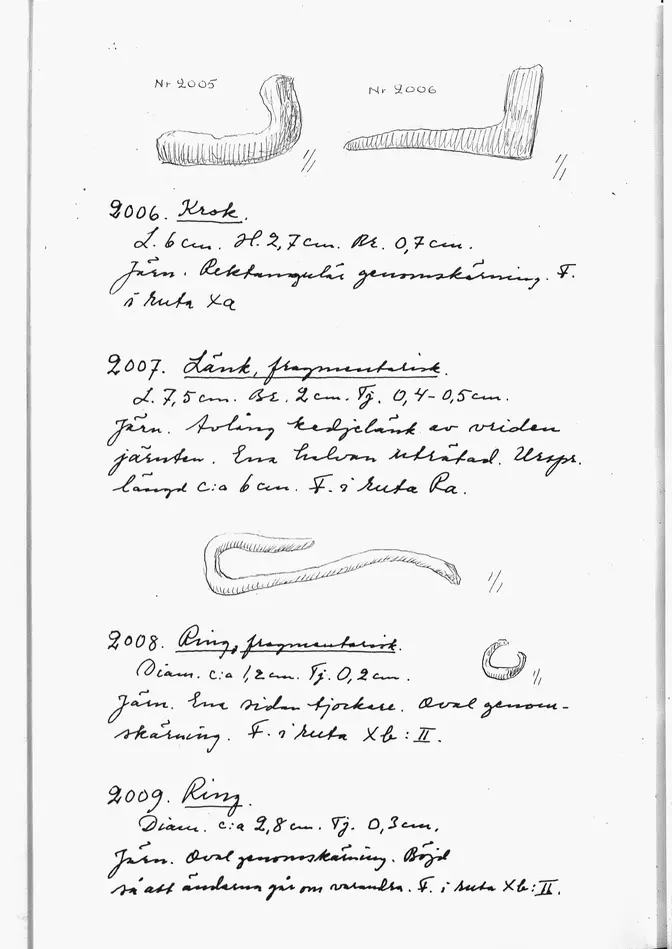 Nr 2005
Nr 2006
1/1
1/1
2006. Krok.
L. 6 cm. H. 2,7 cm. Br. 0,7 cm.
Järn. Rektangulär genomskärning. F.
i ruta Xa
2007. Länk, fragmentarisk.
L. 7,5 cm. Br. 2 cm. Tj. 0,4-0,5 cm.
Järn. Avlång kedjelänk av vriden
järnten. Ena halvan uträtad. Urspr.
längd c:a 6 cm. F. i ruta Ra.
1/1
2008. Ring, fragmentarisk.
Diam. c:a 1,2 cm. Tj. 0,2 cm.
1/1
Järn. Ena sidan tjockare. Oval genom-
skärning. F. i ruta Xb: II.
2009. Ring.
Diam. c:a 2,8 cm. Tj. 0,3 cm.
Järn. Oval genomskärning. Böjd
så att ändarna går om varandra. F. i ruta Xb: II.